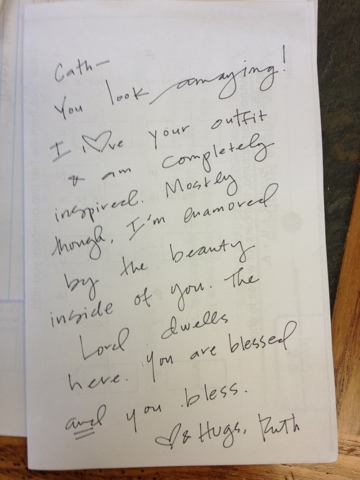 Cath—
You look amazing!
I l♡ve your outfit
& am completely
inspired. Mostly
though, I'm enamored
by the beauty
inside of you. The
Lord dwells
here. You are blessed
and you bless.
♡ & Hugs, Ruth